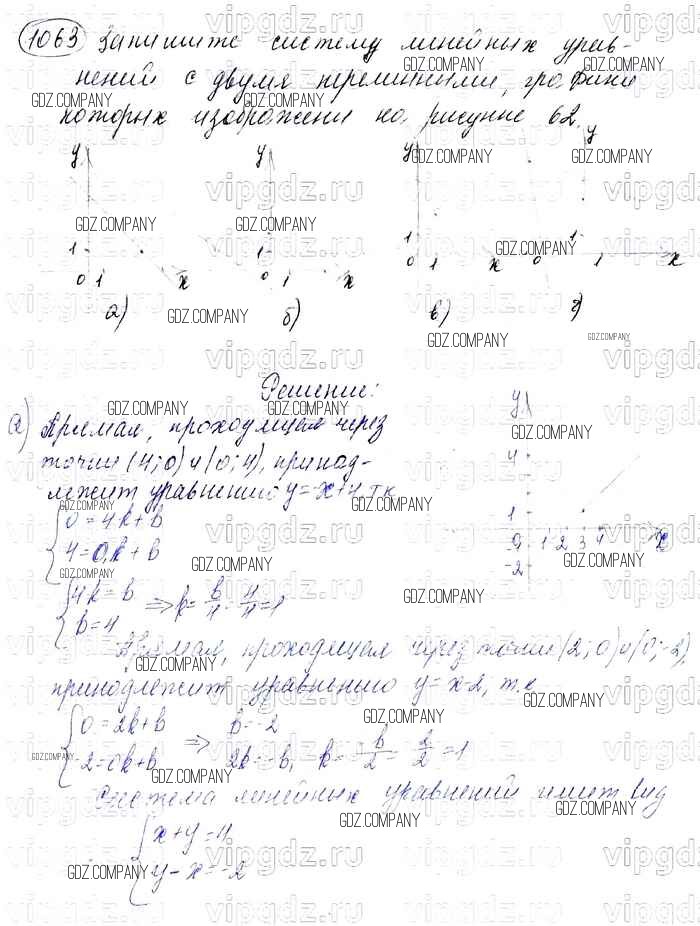 1063 Запишите систему линейных урав-
нений с двумя переменными, графики
которых изображены на рисунке 62.
y y y y
1 1 1 1
0 1 x 0 1 x 0 1 x 0 1 x
а) б) в) г)
Решение:
а) Прямая, проходящая через
точки (4; 0) и (0; 4), принад-
лежит уравнению y = -x + 4, т.к.
0 = 4k + b
4 = 0k + b
4k = b
b = 4
Прямая, проходящая через точки (2; 0) и (0; -2),
принадлежит уравнению y = x-2, т.к
0 = 2k + b
-2 = 0k + b
⇒ b = -2
2k = -b,
Система линейных уравнений имеет вид
x + y = 4
y - x = -2
y
4
1
0 1 2 3 4 x
-2
GDZ.COMPANY
vipgdz.ru